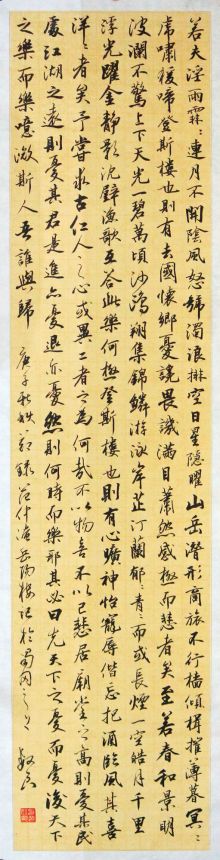 若夫淫雨霏〻連月不開陰風怒號濁浪排空日星隱曜山岳潛形商旅不行檣傾楫摧薄暮冥〻
虎嘯猿啼登斯樓也則有去國懷鄉憂讒畏譏滿目蕭然感極而悲者矣至若春和景明
波瀾不驚上下天光一碧萬頃沙鷗翔集錦鱗游泳岸芷汀蘭郁〻青〻而或長煙一空皓月千里
浮光躍金靜影沉璧漁歌互答此樂何極登斯樓也則有心曠神怡寵辱偕忘把酒臨風其喜
洋〻者矣予嘗求古仁人之心或異二者之為何哉不以物喜不以己悲居廟堂之高則憂其民
處江湖之遠則憂其君是進亦憂退亦憂然則何時而樂耶其必曰先天下之憂而憂後天下
之樂而樂噫微斯人吾誰與歸 庚子秋 錄范仲淹岳陽樓記於